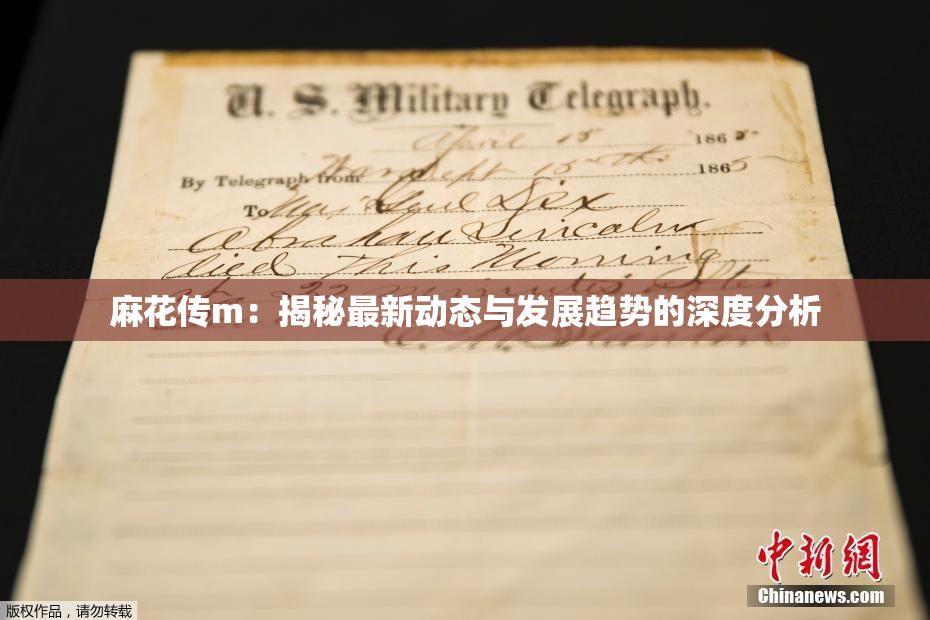 U. S. Military Telegraph.
April 15 1865-
By Telegraph from War Dept 15th 1865
To Maj Genl Dix
Abraham Lincoln
died This Morning
at 22 minutes after
麻花传m：揭秘最新动态与发展趋势的深度分析
E. M. Stanton
中新网
Chinanews.com
版权作品，请勿转载